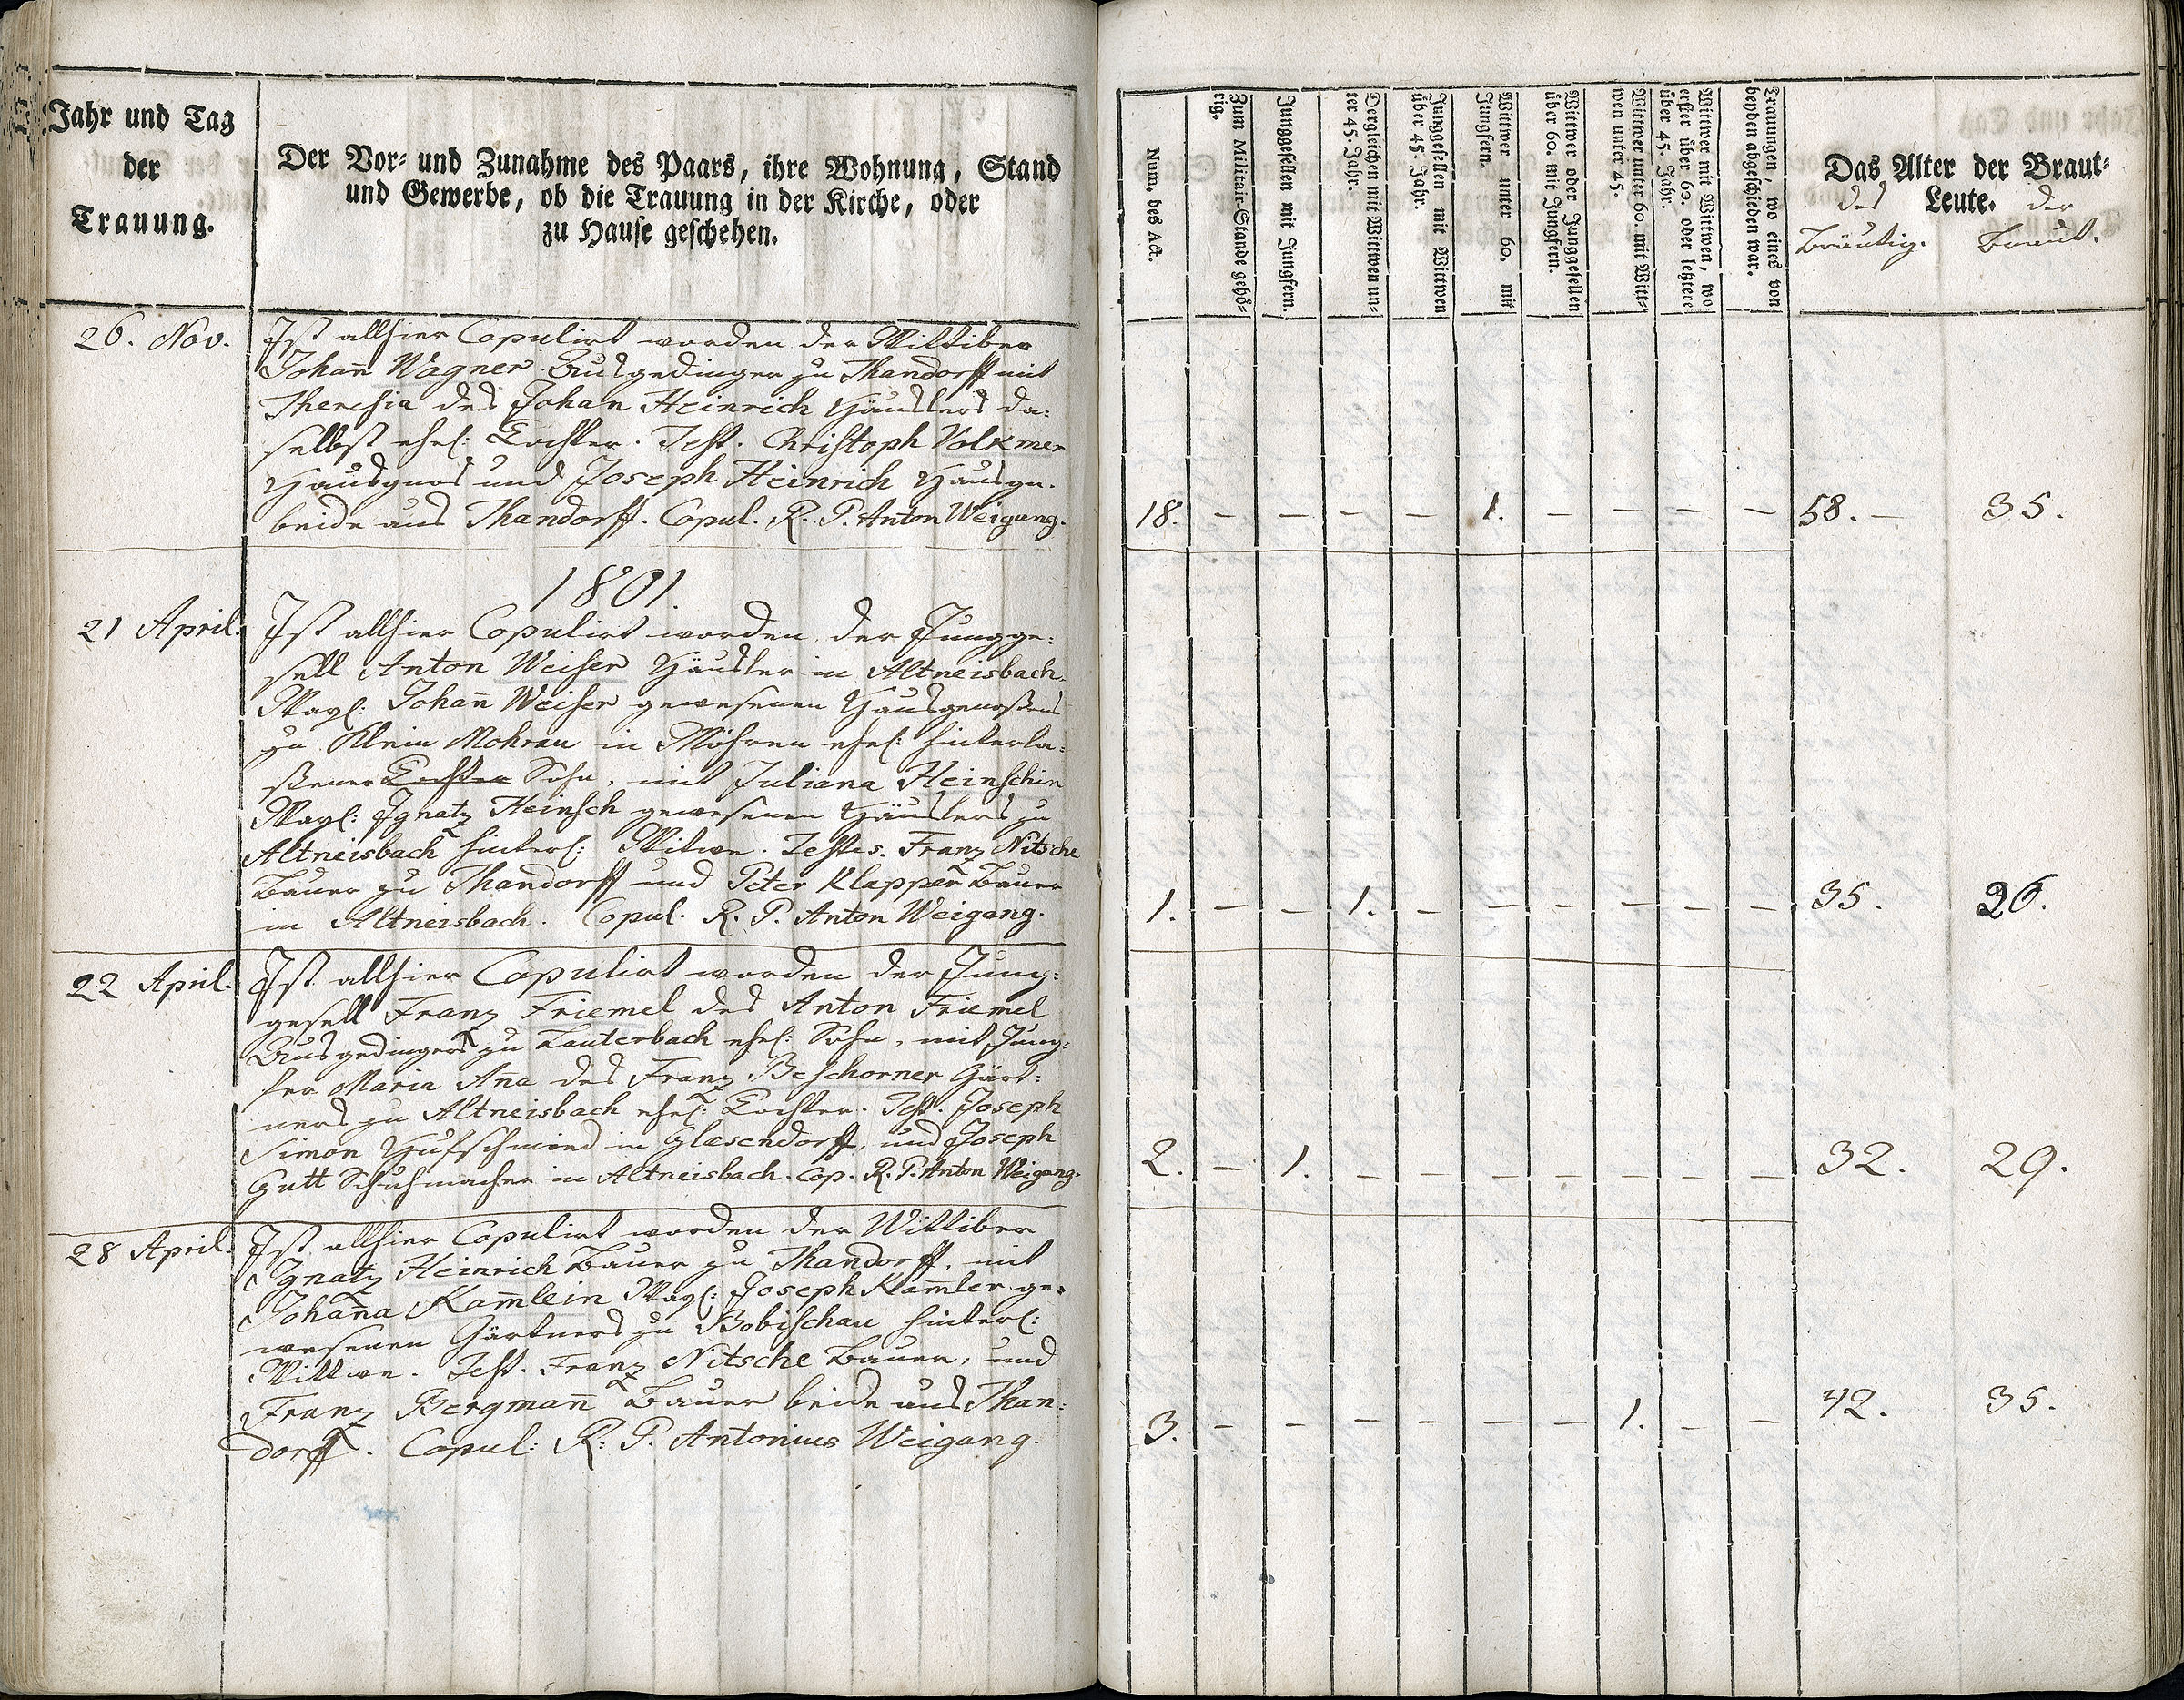 Jahr und Tag
der
Trauung.
Der Vor- und Zunahme des Paars, ihre Wohnung, Stand
und Gewerbe, ob die Trauung in der Kirche, oder
zu Hause geschehen.
26. Nov.
Ist allhier Copulirt worden der Wittiber
Johan̄ Wagner Ausgedinger zu Thandorff mit
Theresia des Johan Heinrich Häuslers da:
selbst ehel: Tochter. Test. Christoph Volkmer
Hausgnos und Joseph Heinrich Hausge.
beide aus Thandorff. Copul. R. P. Anton Weigang.
1801.
21 April.
Ist allhier Copulirt worden, der Jungge:
sell Anton Weiser Häusler in Altneisbach
Johan̄ Weiser gewesenen Hausgenoßens
zu Klein Mohrau in Mähren ehel: hinterla:
ßener Tochter Sohn, mit Juliana Heinschin
Ignatz Heinsch gewesenen Häuslers zu
Altneisbach hinterl: Witwe. Testes. Franz Nitsche
Bauer zu Thandorff und Peter Klapper Bauer
in Altneisbach. Copul. R. P. Anton Weigang.
22 April.
Ist allhier Copulirt worden der Jung:
gesell Franz Friemel des Anton Friemel
Ausgedingers zu Lauterbach ehel: Sohn, mit Jung:
fer Maria An̄a des Franz Beschorner Gärt:
ners zu Altneisbach ehel: Tochter. Test. Joseph
Simon Hufschmied in Glasendorff, und Joseph
Gutt Schuhmacher in Altneisbach. Cop. R. P. Anton Weigang.
28 April.
Ist allhier Copulirt worden der Wittiber
Ignatz Heinrich Bauer zu Thandorff, mit
Johan̄a Kam̄lein Joseph Kam̄ler ge:
wesenen Gärtners zu Bobischau hinterl:
Wittwe. Test. Franz Nitsche Bauer, und
Franz Bergman̄ Bauer beide aus Than:
dorff. Copul: R: P. Antonius Weigang.
Num. des Act.
Zum Militair-Stande gehö-
rig.
Junggesellen mit Jungfern.
Dergleichen mit Wittwen un-
ter 45. Jahr.
Junggesellen mit Wittwen
über 45. Jahr.
Wittwer unter 60. mit
Jungfern.
Wittwer oder Junggesellen
über 60. mit Jungfern.
Wittwer unter 60. mit Witt-
wen unter 45.
Wittwer mit Wittwen, wo
erster über 60. oder letztere
über 45. Jahr.
Trauungen, wo eines von
beyden abgeschieden war.
Das Alter der Braut-
Leute.
des
der
Bräutig.
Braut.
18. – – – – 1. – – – – 58. – 35.
1. – – 1. – – – – – – 35. 26.
2. – 1. – – – – – – – 32. 29.
3. – – – – – – 1. – – 42. 35.